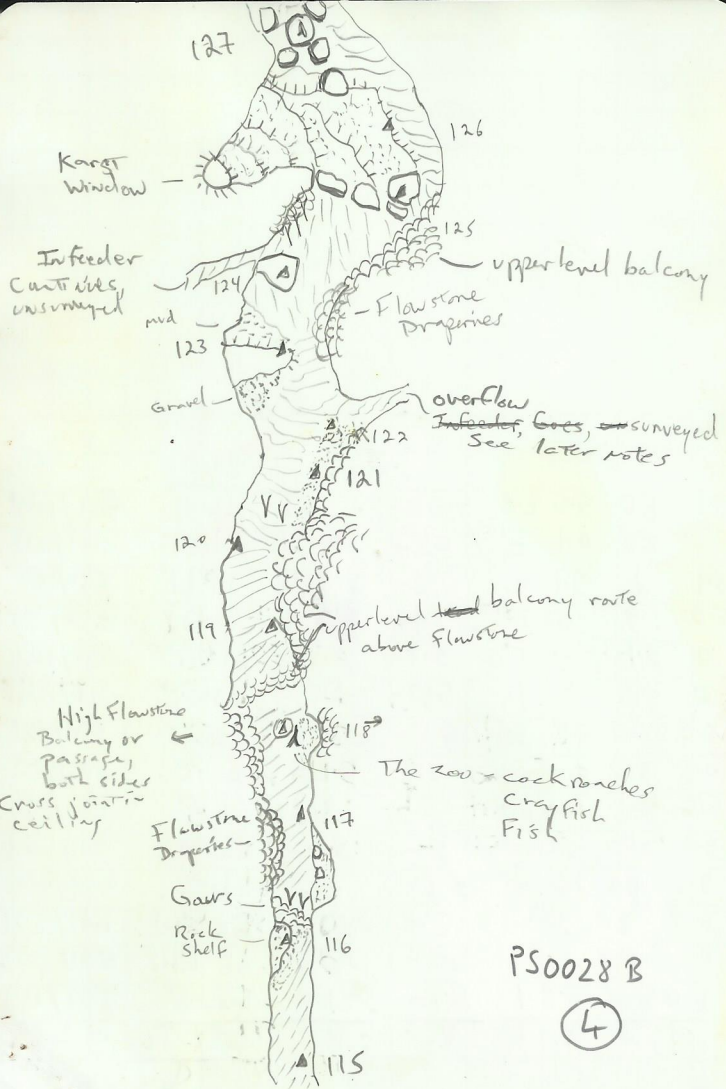 127
126
Karst
Window
125
upper level balcony
Infeeder
Continues,
unsurveyed
124
Flowstone
Draperies
mud
123
Gravel
overflow
Infeeder, Goes, unsurveyed
See later notes
122
121
120
119
upperlevel balcony route
above Flowstone
High Flowstone
Balcony or
passage,
both sides
Cross joint in
ceiling
118
The Zoo - cockroaches
Crayfish
Fish
117
Flowstone
Draperies
Gours
Rock
Shelf
116
PS0028 B
4
115